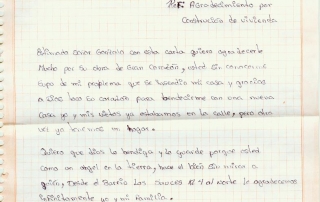 Ref Agradecimiento por
Construcción de vivienda
con esta carta quiero agradecerle
Mucho por su obra de Gran Corazón, usted sin conocerme
supo de mi problema que se mi casa y gracias
a Dios toco su corazón para bendecirme con una nueva
casa yo y mis estabamos en la calle, pero otra
vez ya tenemos mi hogar.
Quiero que Dios lo bendiga y lo guarde porque usted
como un angel en la tierra, hace el bien sin mirar a
quién, desde el Barrio Los Sauces le agradecemos
infinitamente yo y mi Familia.